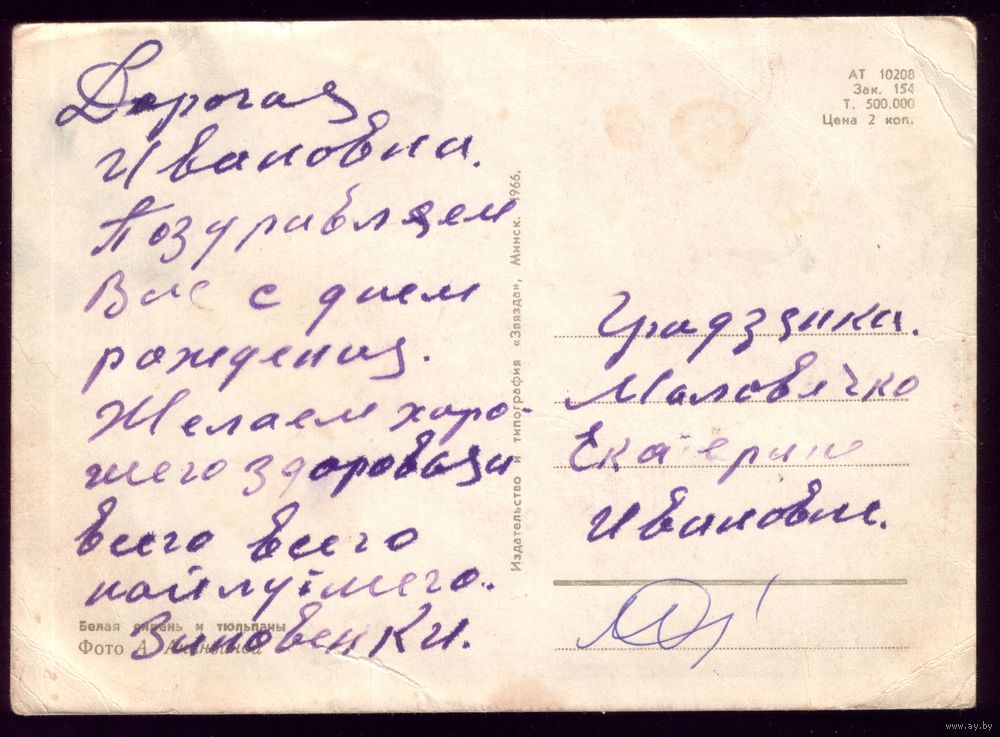 Дорогая
Ивановна.
Поздравляем
Вас с днем
рождения.
Желаем хоро-
шего здоровья и
всего всего
найлутшего.
Зиновенки.
Белая сирень и тюльпаны
Фото А.
Издательство и типография «Звязда», Минск. 1966.
АТ 10208
Зак. 154
Т. 500.000
Цена 2 коп.
Маловячко
Екатерине
Ивановне.
www.ay.by